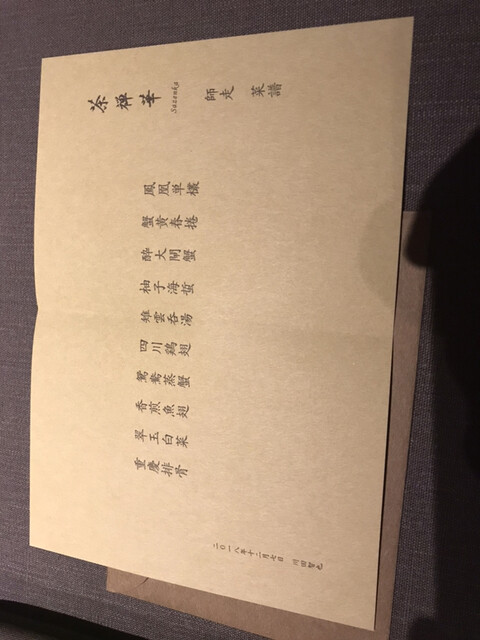 茶禅華
Sazenka
師走 菜譜
鳳凰単欉
蟹黄春捲
酔大閘蟹
柚子海蜇
雉雲呑湯
四川鶏翅
鴛鴦蒸蟹
香煎魚翅
翠玉白菜
重慶排骨
二〇一八年十二月七日 川田智也